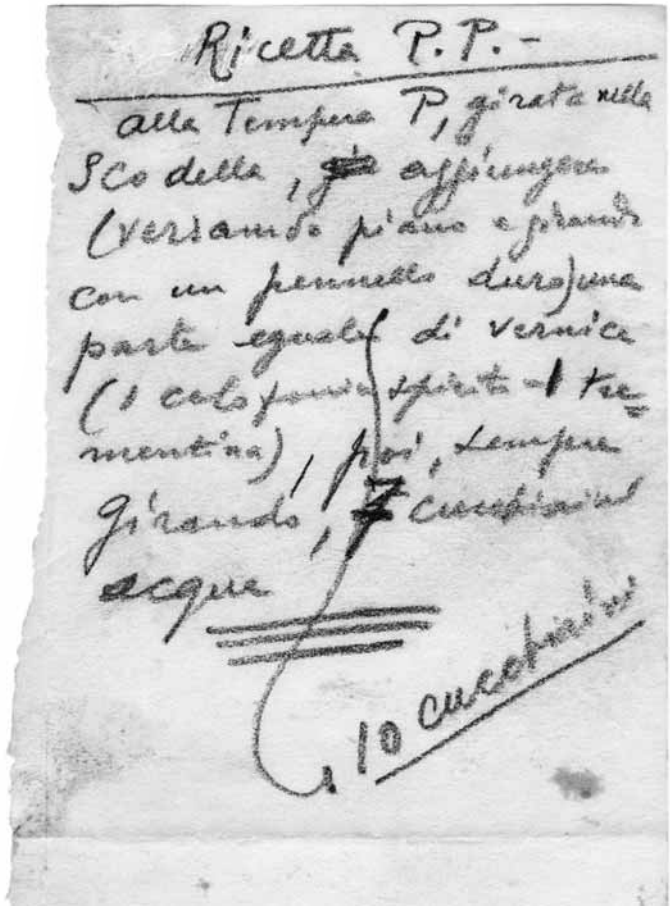 Ricetta P.P.-
alla Tempera P, girata nella
Scodella, aggiungere
(versando piano e girando
con un pennello duro) una
parte eguale di vernice
(1 colofonia spirito - 1 tre=
mentina), poi, sempre
girando, 7 cucchiaini
acqua
10 cucchiaini